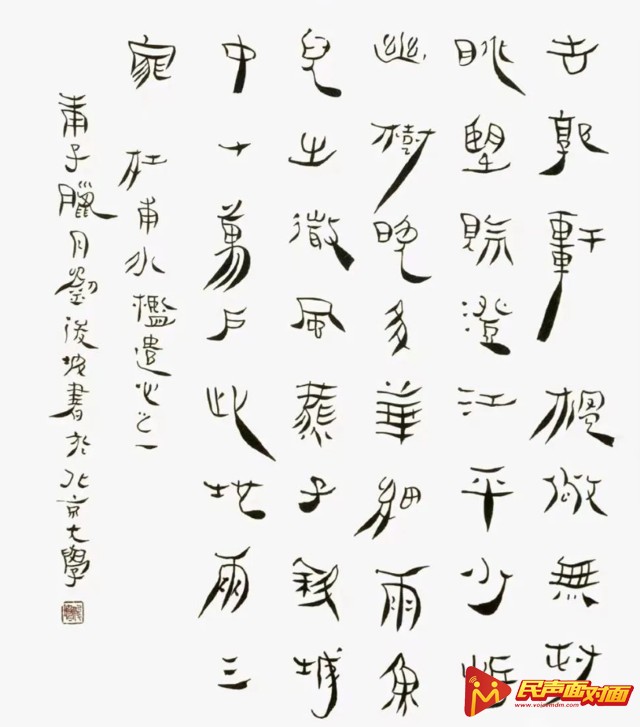 去郭軒楹敞無村
眺望賒澄江平少岸
幽樹晚多華細雨魚
兒出微風燕子斜城
中十萬戶此地兩三
家
杜甫水檻遣心之一
庚子臘月劉書於北京大學
民声面对面
www.voicemdm.com